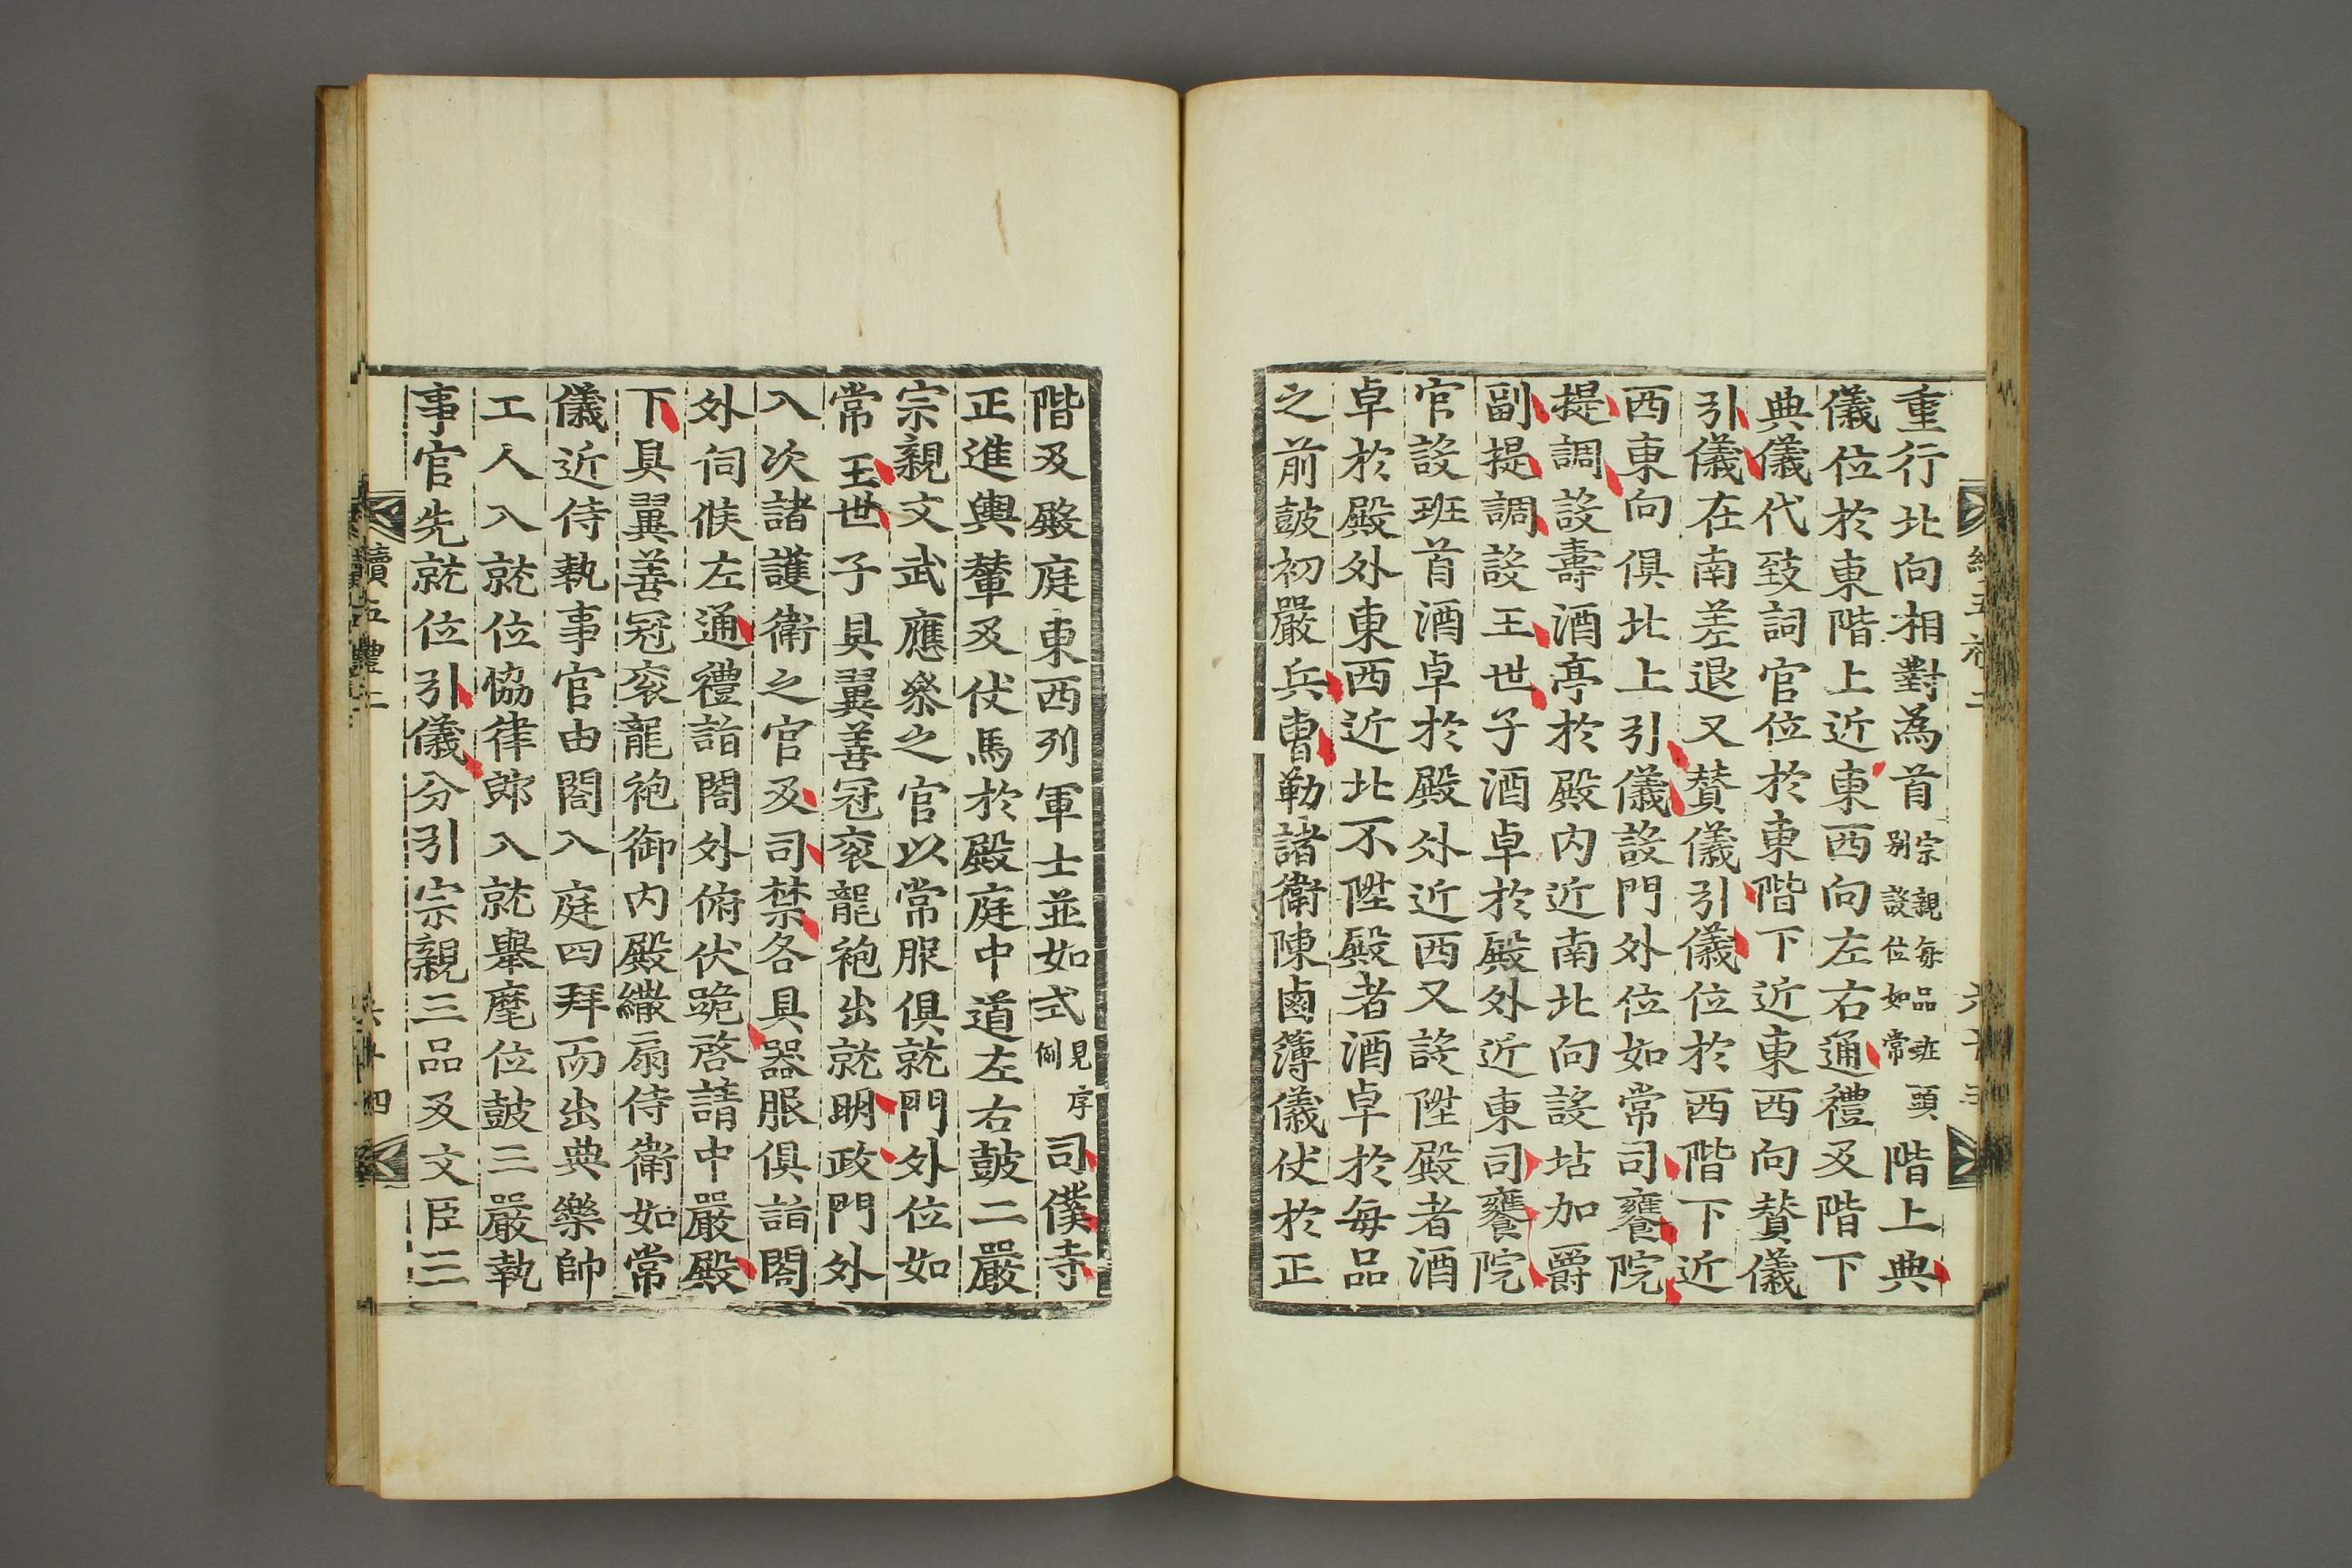 重行北向相對為首宗親每品班頭別設位如常階上典
儀位於東階上近東西向左右通禮及階下
典儀代致詞官位於東階下近東西向贊儀
引儀在南差退又贊儀引儀位於西階下近
西東向俱北上引儀設門外位如常司饔院
提調設壽酒亭於殿內近南北向設坫加爵
副提調設王世子酒卓於殿外近東司饔院
官設班首酒卓於殿外近西又設陞殿者酒
卓於殿外東西近北不陞殿者酒卓於每品
之前鼓初嚴兵曺勒諸衛陳鹵簿儀仗於正
階及殿庭東西列軍士並如式見序例司僕寺
正進輿輦及仗馬於殿庭中道左右鼓二嚴
宗親文武應叅之官以常服俱就門外位如
常王世子具翼善冠衮龍袍出就明政門外
入次諸護衛之官及司禁各具器服俱詣閤
外伺候左通禮詣閤外俯伏跪啓請中嚴殿
下具翼善冠衮龍袍御內殿繖扇侍衛如常
儀近侍執事官由閤入庭四拜而出典樂帥
工人入就位恊律郞入就舉麾位鼓三嚴執
事官先就位引儀分引宗親三品及文臣三
續五禮二
六十四